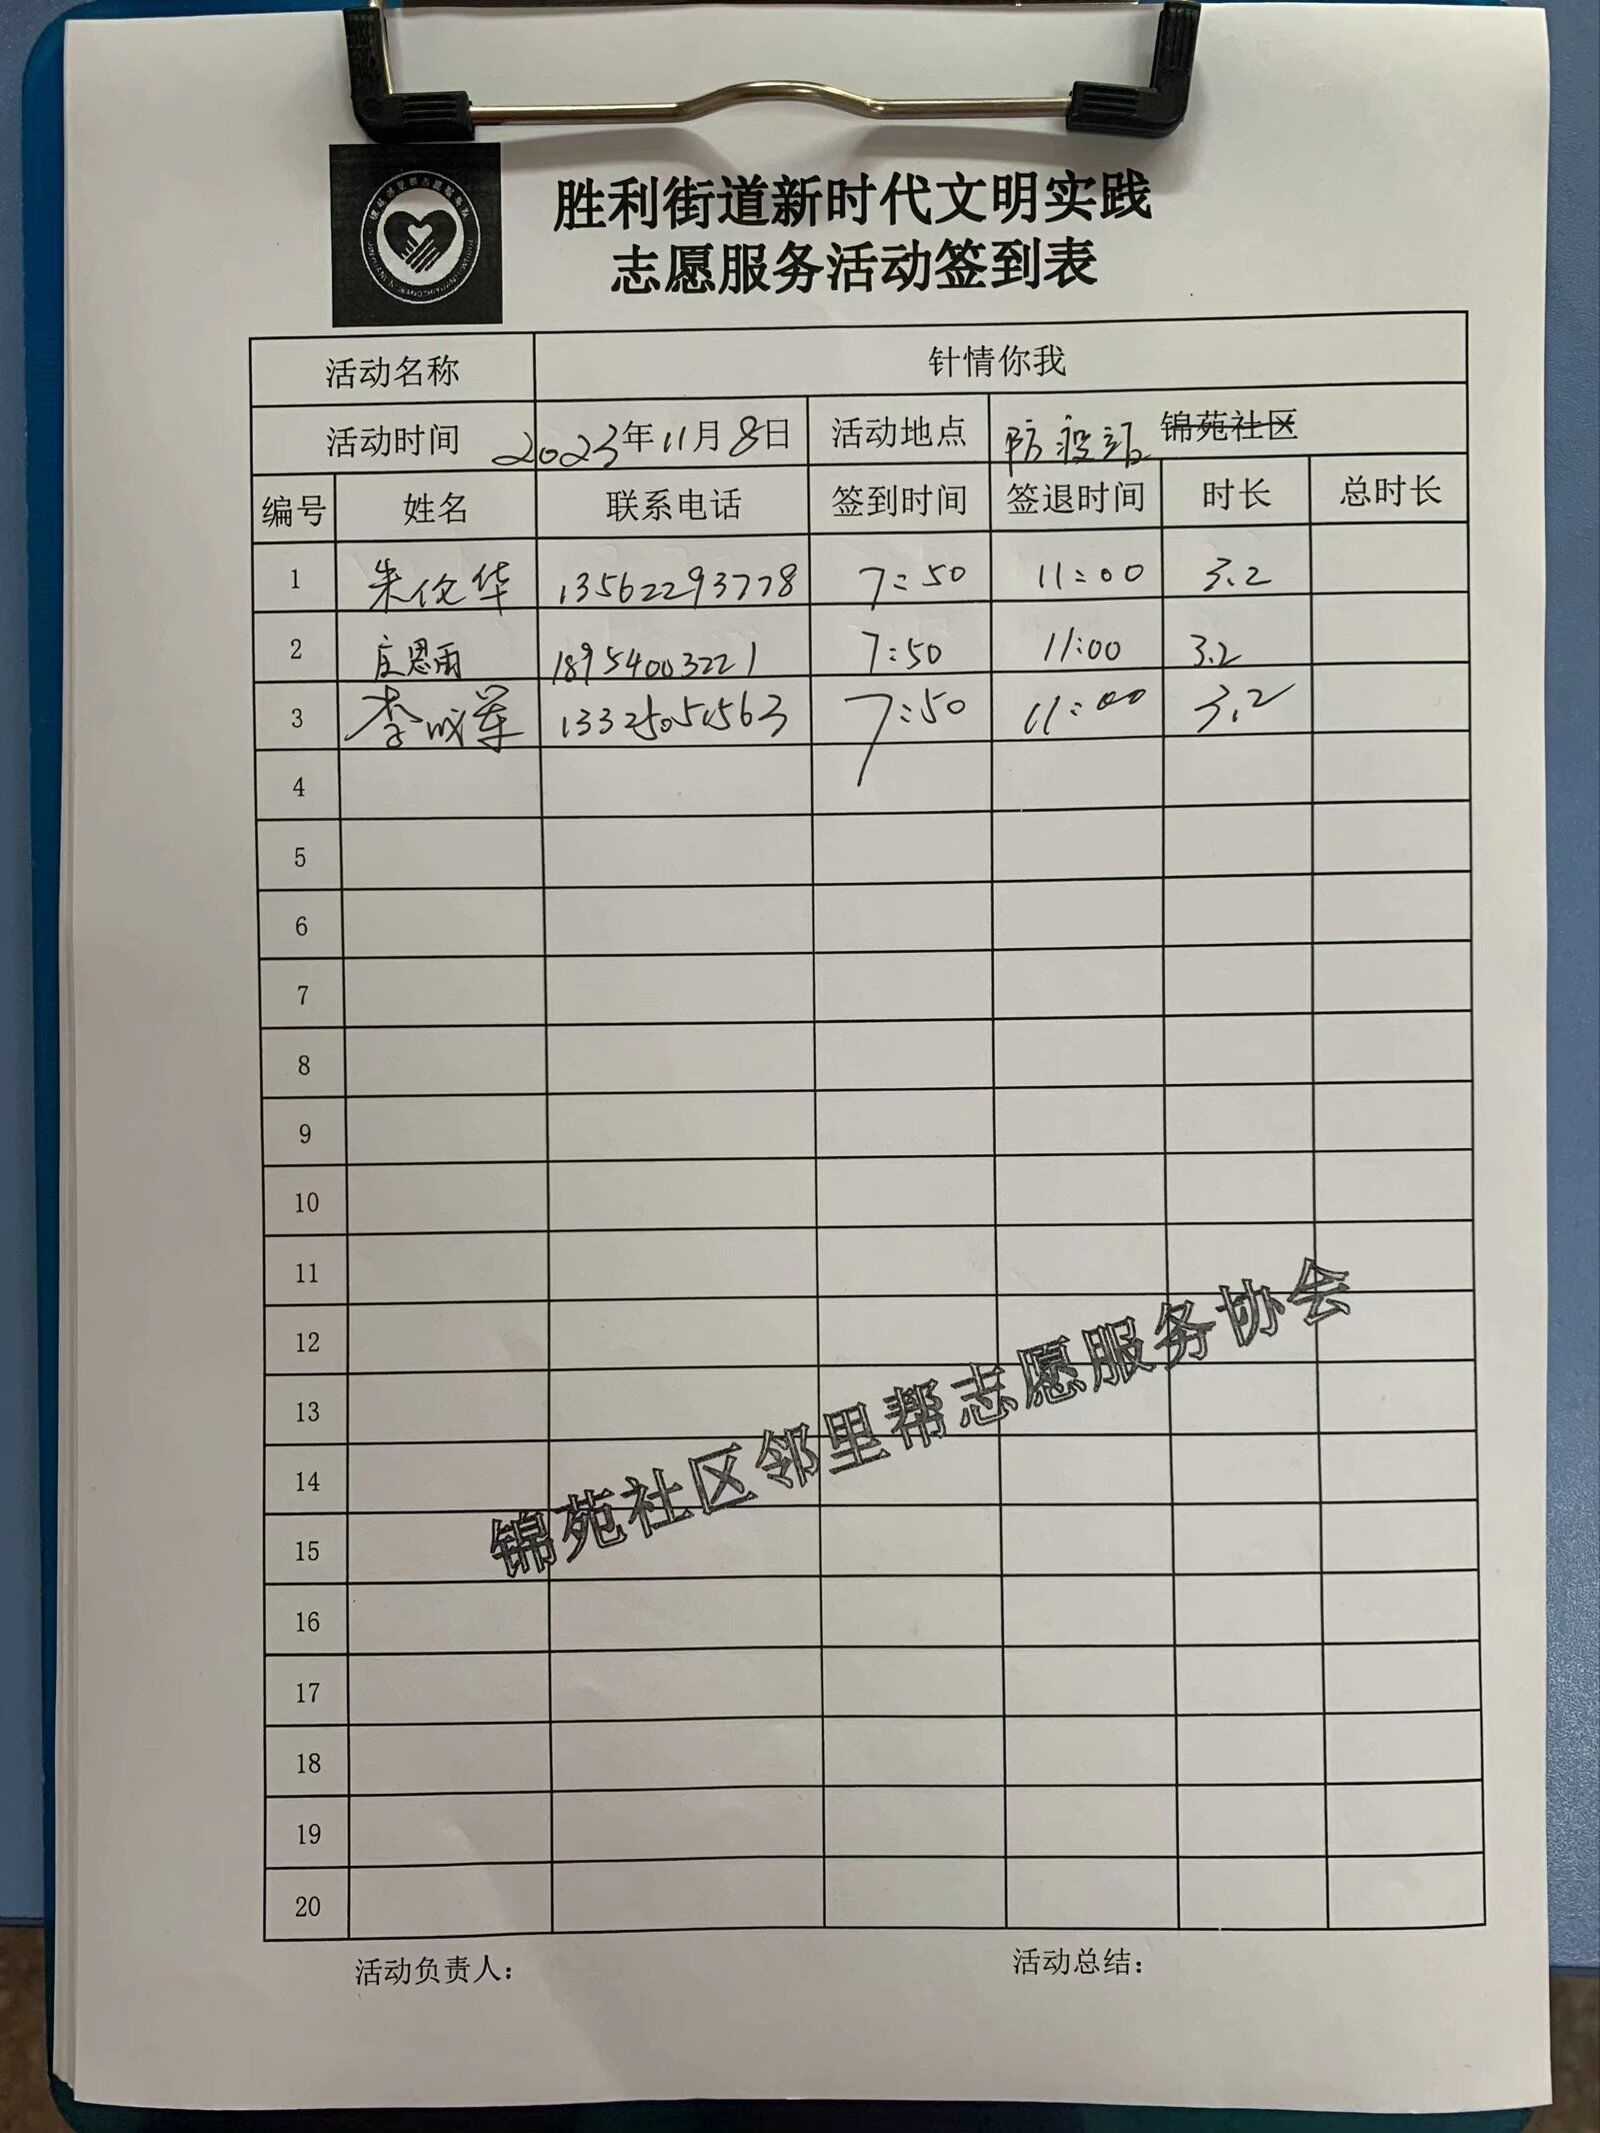 胜利街道新时代文明实践
志愿服务活动签到表
活动名称 针情你我
活动时间 2023年11月8日 活动地点 防疫站 锦苑社区
编号 姓名 联系电话 签到时间 签退时间 时长 总时长
1 朱伦华 13562293778 7:50 11:00 3.2
2 庄恩雨 18954003221 7:50 11:00 3.2
3 李成军 7:50 11:00 3.2
4
5
6
7
8
9
10
11
12
13
14
15
16
17
18
19
20
锦苑社区邻里帮志愿服务协会
活动负责人： 活动总结：